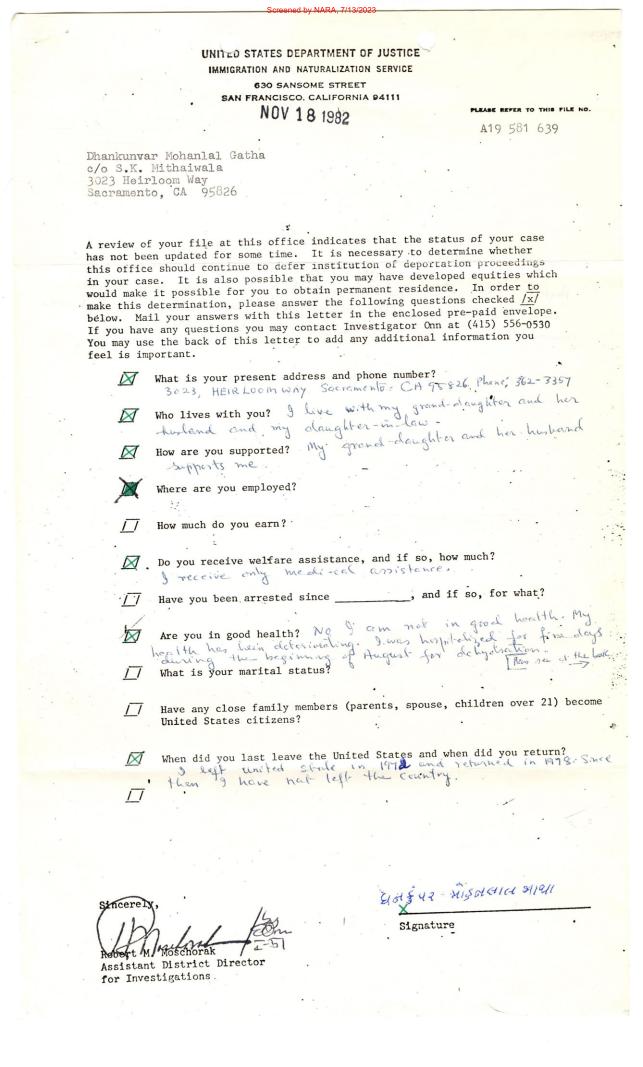 Screened by NARA, 7/13/2023
UNITED STATES DEPARTMENT OF JUSTICE
IMMIGRATION AND NATURALIZATION SERVICE
630 SANSOME STREET
SAN FRANCISCO, CALIFORNIA 94111
NOV 18 1982
PLEASE REFER TO THIS FILE NO.
A19 581 639
Dhankunvar Mohanlal Gatha
c/o S.K. Mithaiwala
3023 Heirloom Way
Sacramento, CA 95826
A review of your file at this office indicates that the status of your case
has not been updated for some time. It is necessary to determine whether
this office should continue to defer institution of deportation proceedings
in your case. It is also possible that you may have developed equities which
would make it possible for you to obtain permanent residence. In order to
make this determination, please answer the following questions checked /x/
below. Mail your answers with this letter in the enclosed pre-paid envelope.
If you have any questions you may contact Investigator Onn at (415) 556-0530
You may use the back of this letter to add any additional information you
feel is important.
What is your present address and phone number?
3023, HEIRLOOM WAY Sacramento. CA 95826, Phone; 362-3357
Who lives with you? I live with my grand-daughter and her
husband and my daughter-in-law.
How are you supported? My grand-daughter and her husband
supports me.
Where are you employed?
How much do you earn?
Do you receive welfare assistance, and if so, how much?
I receive only medi-cal assistance.
Have you been arrested since ____________, and if so, for what?
Are you in good health? No I am not in good health. My
health has been deteriorating. I was hospitalized for five days
during the beginning of August for dehydration.
What is your marital status? at the back
Have any close family members (parents, spouse, children over 21) become
United States citizens?
When did you last leave the United States and when did you return?
I left united state in 1972 and returned in 1978. Since
then I have not left the country.
Sincerely,
ધનકુંવર મોહનલાલ ગાથા
X
Signature
Robert M. Moschorak
Assistant District Director
for Investigations